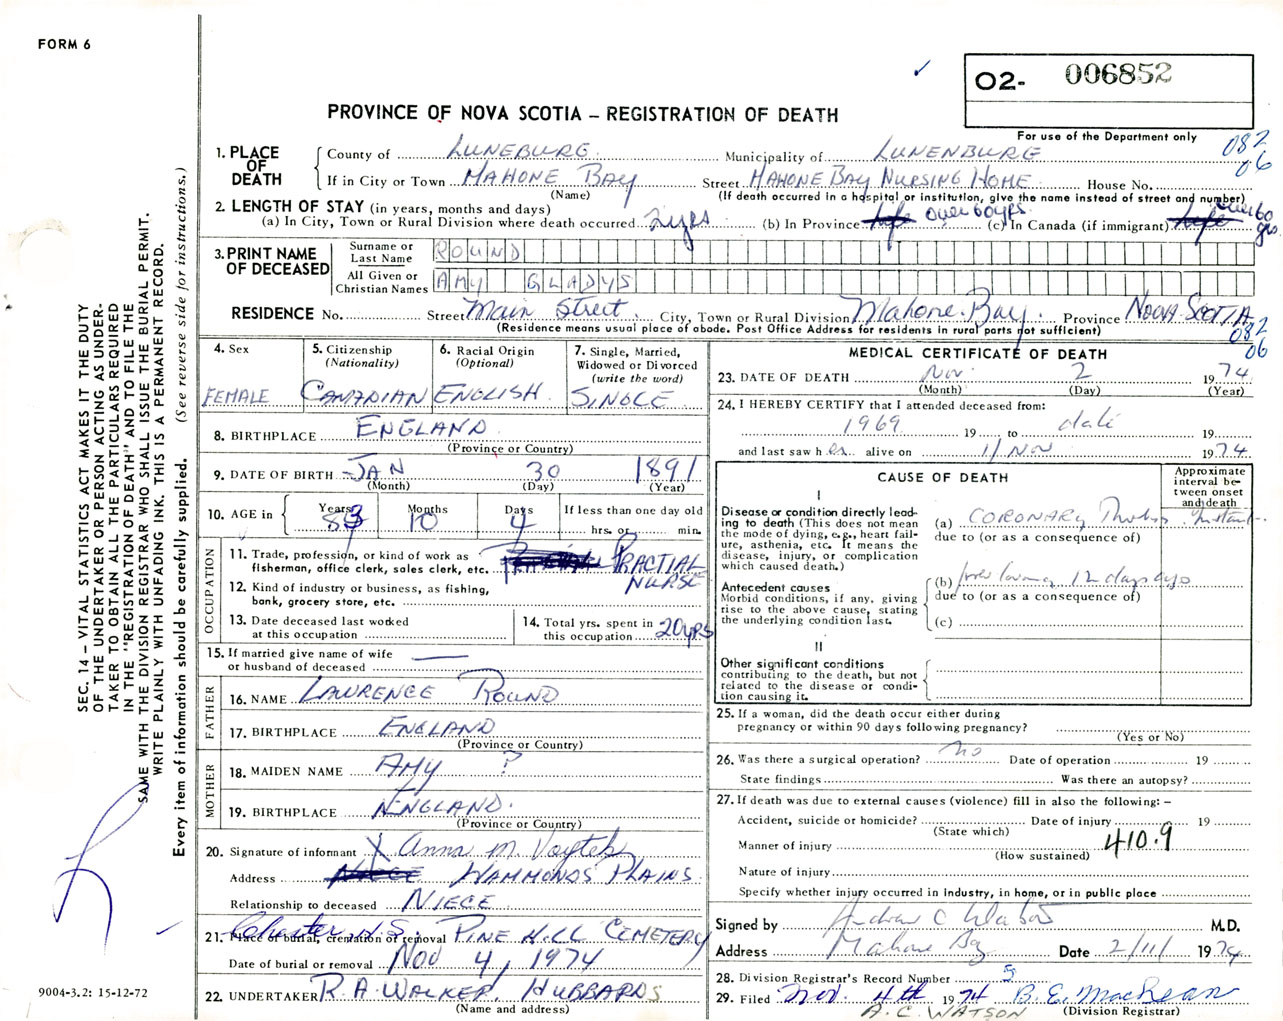 FORM 6
✓
O2- 006852
PROVINCE OF NOVA SCOTIA – REGISTRATION OF DEATH
For use of the Department only
082
06
1. PLACE OF DEATH
County of LUNEBURG Municipality of LUNENBURG
If in City or Town MAHONE BAY Street MAHONE BAY NURSING HOME House No.
(Name) (If death occurred in a hospital or institution, give the name instead of street and number)
2. LENGTH OF STAY (in years, months and days)
(a) In City, Town or Rural Division where death occurred 2 yrs (b) In Province life over 60 yrs. (c) In Canada (if immigrant) life over 60 yrs.
3. PRINT NAME OF DECEASED
Surname or Last Name ROUND
All Given or Christian Names AMY GLADYS
RESIDENCE No. Street Main Street City, Town or Rural Division Mahone Bay Province NOVA SCOTIA
(Residence means usual place of abode. Post Office Address for residents in rural parts not sufficient)
082
06
4. Sex
FEMALE
5. Citizenship
(Nationality)
CANADIAN
6. Racial Origin
(Optional)
ENGLISH
7. Single, Married,
Widowed or Divorced
(write the word)
SINGLE
8. BIRTHPLACE ENGLAND
(Province or Country)
9. DATE OF BIRTH JAN 30 1891
(Month) (Day) (Year)
10. AGE in
Years 83 Months 10 Days 4
If less than one day old
hrs. or min.
OCCUPATION
11. Trade, profession, or kind of work as
fisherman, office clerk, sales clerk, etc. PRACTIAL NURSE
12. Kind of industry or business, as fishing,
bank, grocery store, etc.
13. Date deceased last worked
at this occupation
14. Total yrs. spent in
this occupation 20 yrs
15. If married give name of wife
or husband of deceased —
FATHER
16. NAME LAWRENCE ROUND
17. BIRTHPLACE ENGLAND
(Province or Country)
MOTHER
18. MAIDEN NAME AMY ?
19. BIRTHPLACE ENGLAND.
(Province or Country)
20. Signature of informant X Anna M
Address NIECE HAMMONDS PLAINS
Relationship to deceased NIECE
Chester, N.S.
21. Place of burial, cremation or removal PINE HILL CEMETERY
Date of burial or removal Nov 4, 1974
22. UNDERTAKER R. A. WALKER, HUBBARDS
(Name and address)
MEDICAL CERTIFICATE OF DEATH
23. DATE OF DEATH Nov. 2 1974
(Month) (Day) (Year)
24. I HEREBY CERTIFY that I attended deceased from:
1969 19 to date 19
and last saw her alive on 1/ Nov 1974
CAUSE OF DEATH
Approximate
interval be-
tween onset
and death
I
Disease or condition directly lead-
ing to death (This does not mean
the mode of dying, e.g., heart fail-
ure, asthenia, etc. It means the
disease, injury, or complication
which caused death.)
(a) CORONARY Instant
due to (or as a consequence of)
Antecedent causes
Morbid conditions, if any, giving
rise to the above cause, stating
the underlying condition last.
(b) 12 days ago
due to (or as a consequence of)
(c)
II
Other significant conditions
contributing to the death, but not
related to the disease or condi-
tion causing it.
25. If a woman, did the death occur either during
pregnancy or within 90 days following pregnancy?
(Yes or No)
26. Was there a surgical operation? no Date of operation 19
State findings Was there an autopsy?
27. If death was due to external causes (violence) fill in also the following: –
Accident, suicide or homicide? Date of injury 19
(State which)
Manner of injury 410.9
(How sustained)
Nature of injury
Specify whether injury occurred in industry, in home, or in public place
Signed by Andrew C Watson M.D.
Address Mahone Bay Date 2/11/ 1974
28. Division Registrar's Record Number 5
29. Filed Nov. 4th 1974 B. E. MacKean
(Division Registrar)
A. C. WATSON
SEC. 14 – VITAL STATISTICS ACT MAKES IT THE DUTY
OF THE UNDERTAKER OR PERSON ACTING AS UNDER-
TAKER TO OBTAIN ALL THE PARTICULARS REQUIRED
IN THE "REGISTRATION OF DEATH" AND TO FILE THE
SAME WITH THE DIVISION REGISTRAR WHO SHALL ISSUE THE BURIAL PERMIT.
WRITE PLAINLY WITH UNFADING INK. THIS IS A PERMANENT RECORD.
Every item of information should be carefully supplied. (See reverse side for instructions.)
9004-3.2: 15-12-72